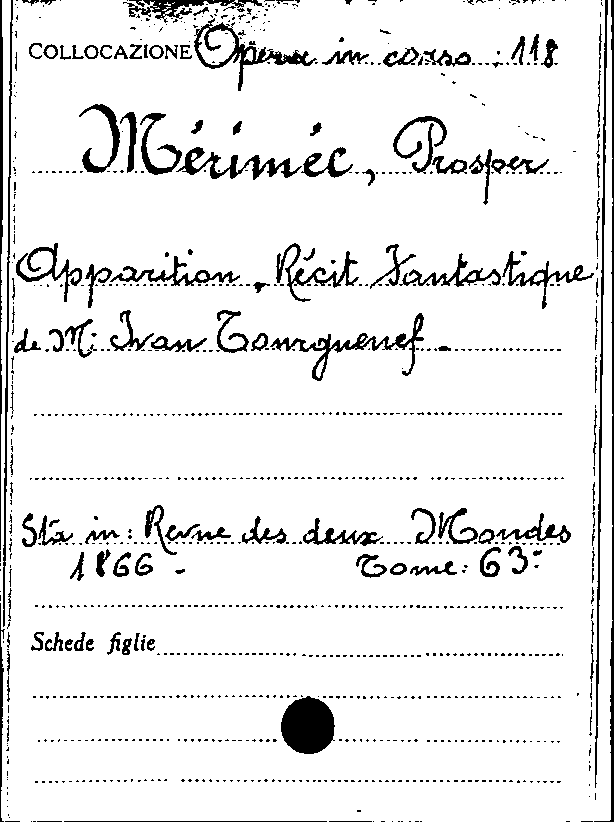 COLLOCAZIONE Opera in corso : 118
Mérimée, Prosper
Apparition. Récit Fantastique
de M: Ivan Tourguenef -
Sta in: Revue des deux Mondes
1866 - Tome: 63:
Schede figlie